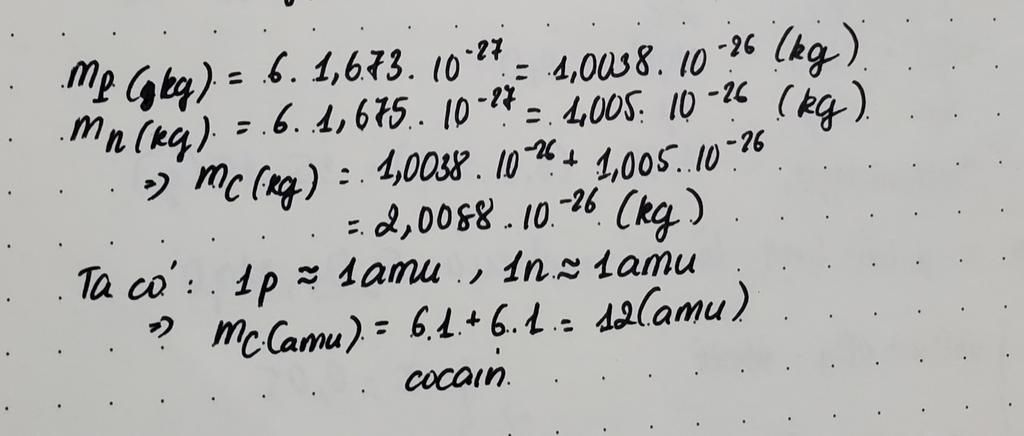 mp (kg) = 6. 1,673. 10⁻²⁷ = 1,0038. 10⁻²⁶ (kg)
mn (kg) = 6. 1,675. 10⁻²⁷ = 1,005. 10⁻²⁶ (kg)
=> mC (kg) = 1,0038. 10⁻²⁶ + 1,005. 10⁻²⁶
= 2,0088. 10⁻²⁶ (kg)
Ta có: 1p ≈ 1amu, 1n ≈ 1amu
=> mC (amu) = 6.1 + 6.1 = 12(amu)
cocain